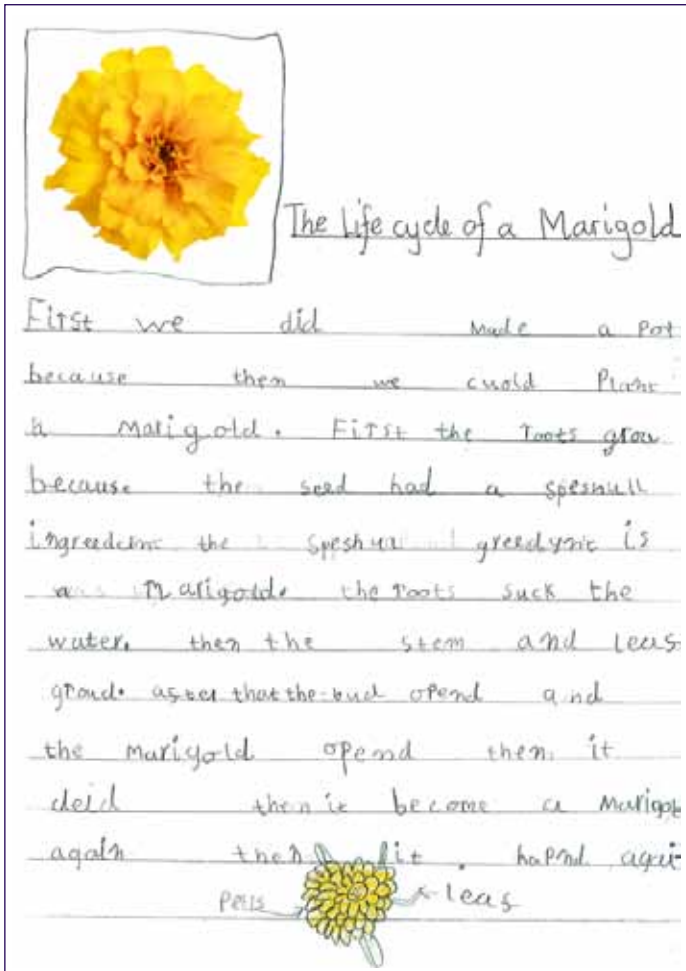 The Life cycle of a Marigold
First we did made a pot
because then we cuold Plant
a Marigold. First the roots grow
because the seed had a speshull
the speshual greedynt is
a Marigold. the roots suck the
water. then the stem and leas
after that the bud opend and
the Marigold opend then it
deid then it become a Marigold
again then it. hapnd agai
leas